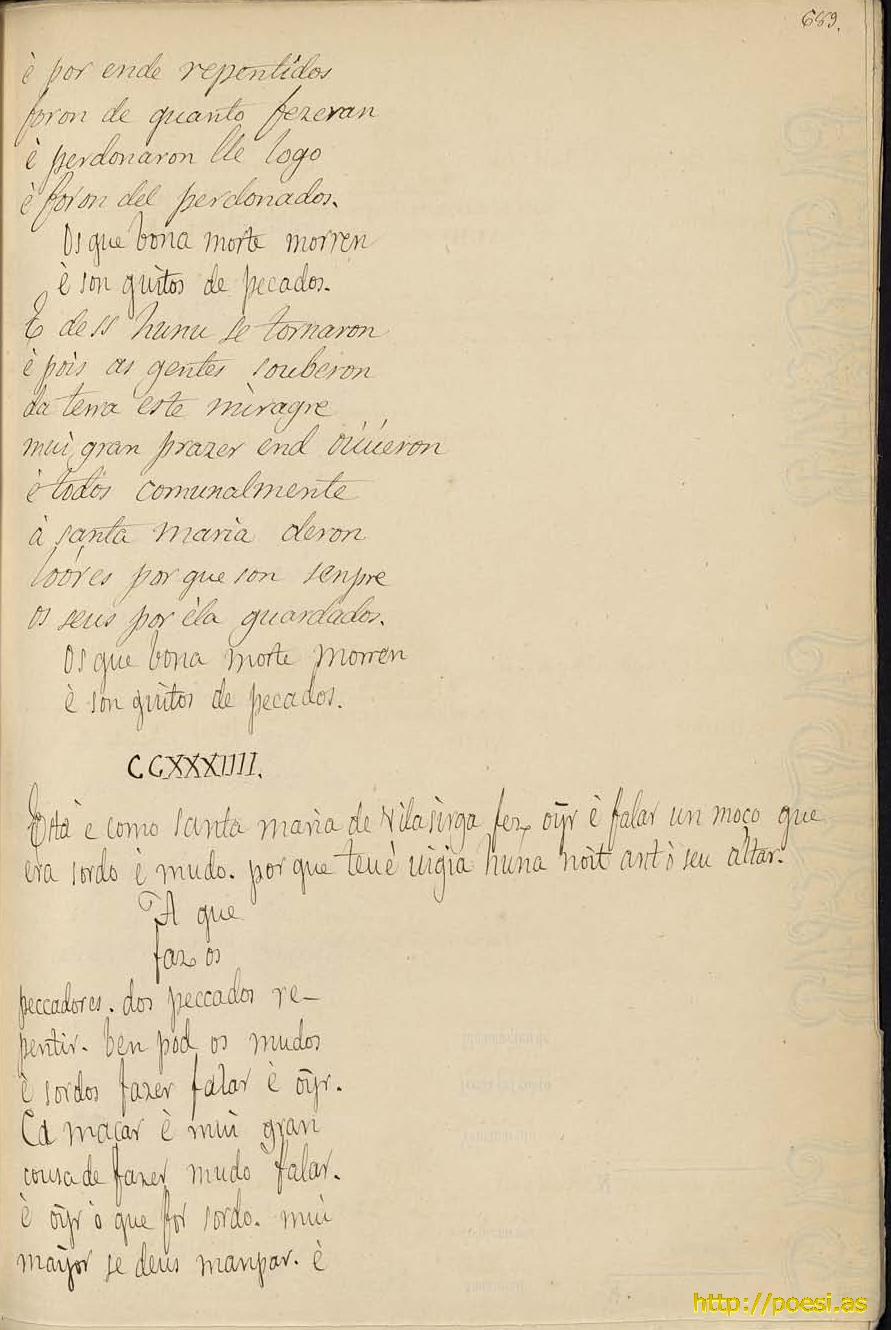 689.
è por ende repentidos
foron de quanto fezeran
è perdonaron lle logo
è foron del perdonados.
Os que bona morte morren
è son quitos de pecados.
E dess hunu se tornaron
è pois as gentes souberon
da terra este miragre
mui gran prazer end oúúeron
è todos comunalmente
à santa maria deron
loóres por que son senpre
os seus por èla guardados.
Os que bona morte morren
è son quitos de pecados.
CCXXXIIII.
Esta è como santa maria de Vila sirga fez oÿr è falar un moço que
era sordo è mudo. por que teuè uigia hunà noit ant ò seu altar.
A que
faz os
peccadores. dos peccados re-
pentir. ben pod os mudos
è sordos fazer falar è oÿr.
Ca macar è mui gran
cousa de fazer mudo falar.
è oÿr ò que for sordo. mui
mayor se deus manpar. è
http://poesi.as